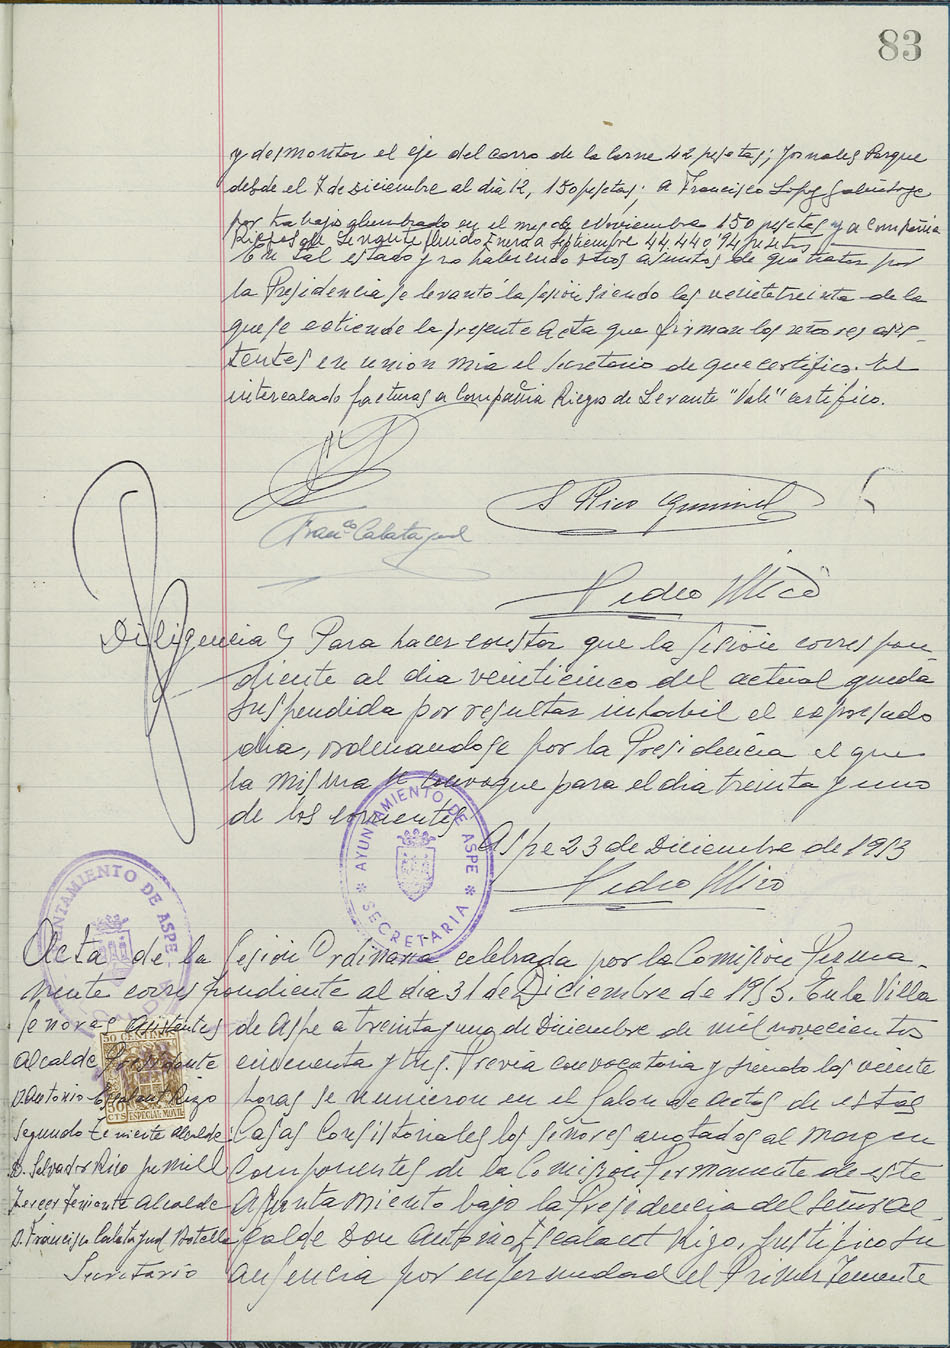 83
y desmontar el eje del carro de la carne 42 pesetas; jornales Parque
desde el 7 de Diciembre al dia 12, 150 pesetas; a Francisco Lopez
por trabajos alumbrado en el mes de Noviembre 150 pesetas y a Compañia
Riegos de Levante fluido Enero a Septiembre 44.440,94 pesetas
En tal estado y no habiendo otros asuntos de que tratar por
la Presidencia se levantó la sesión siendo las veintetreinta de la
que se extiende la presente Acta que firman los señores asis-
tentes en union mia el Secretario de que certifico. El
intercalado facturas a Compañia Riegos de Levante "Vale" certifico.
S Rico Gumiel
Franco Calatayud
Pedro Mico
Diligencia Para hacer constar que la sesión correspon-
diente al dia veinticinco del actual queda
suspendida por resultar inhabil el expresado
dia, ordenandose por la Presidencia el que
la misma se convoque para el dia treinta y uno
de los corrientes
Aspe 23 de Diciembre de 1953
Pedro Mico
AYUNTAMIENTO DE ASPE
* SECRETARIA *
NTAMIENTO DE ASPE
Acta de la Sesión Ordinaria celebrada por la Comisión Perma-
nente correspondiente al dia 31 de Diciembre de 1953. En la Villa
Señores asistentes de Aspe a treinta y uno de Diciembre de mil novecientos
Alcalde Presidente cincuenta y tres. Previa convocatoria y siendo las veinte
D. Antonio Escalant Rigo horas se reunieron en el Salon de actos de estas
Segundo teniente Alcalde Casas Consistoriales los señores anotados al margen
D. Salvador Rico Gumiell Componentes de la Comisión Permanente de este
Tercer Teniente Alcalde Ayuntamiento bajo la Presidencia del Señor Al-
D. Francisco Calatayud Botella calde Don Antonio Escalant Rigo. Justificó su
Secretario ausencia por enfermedad el Primer Teniente
50 CENTIMOS
50
CTS ESPECIAL MOVIL